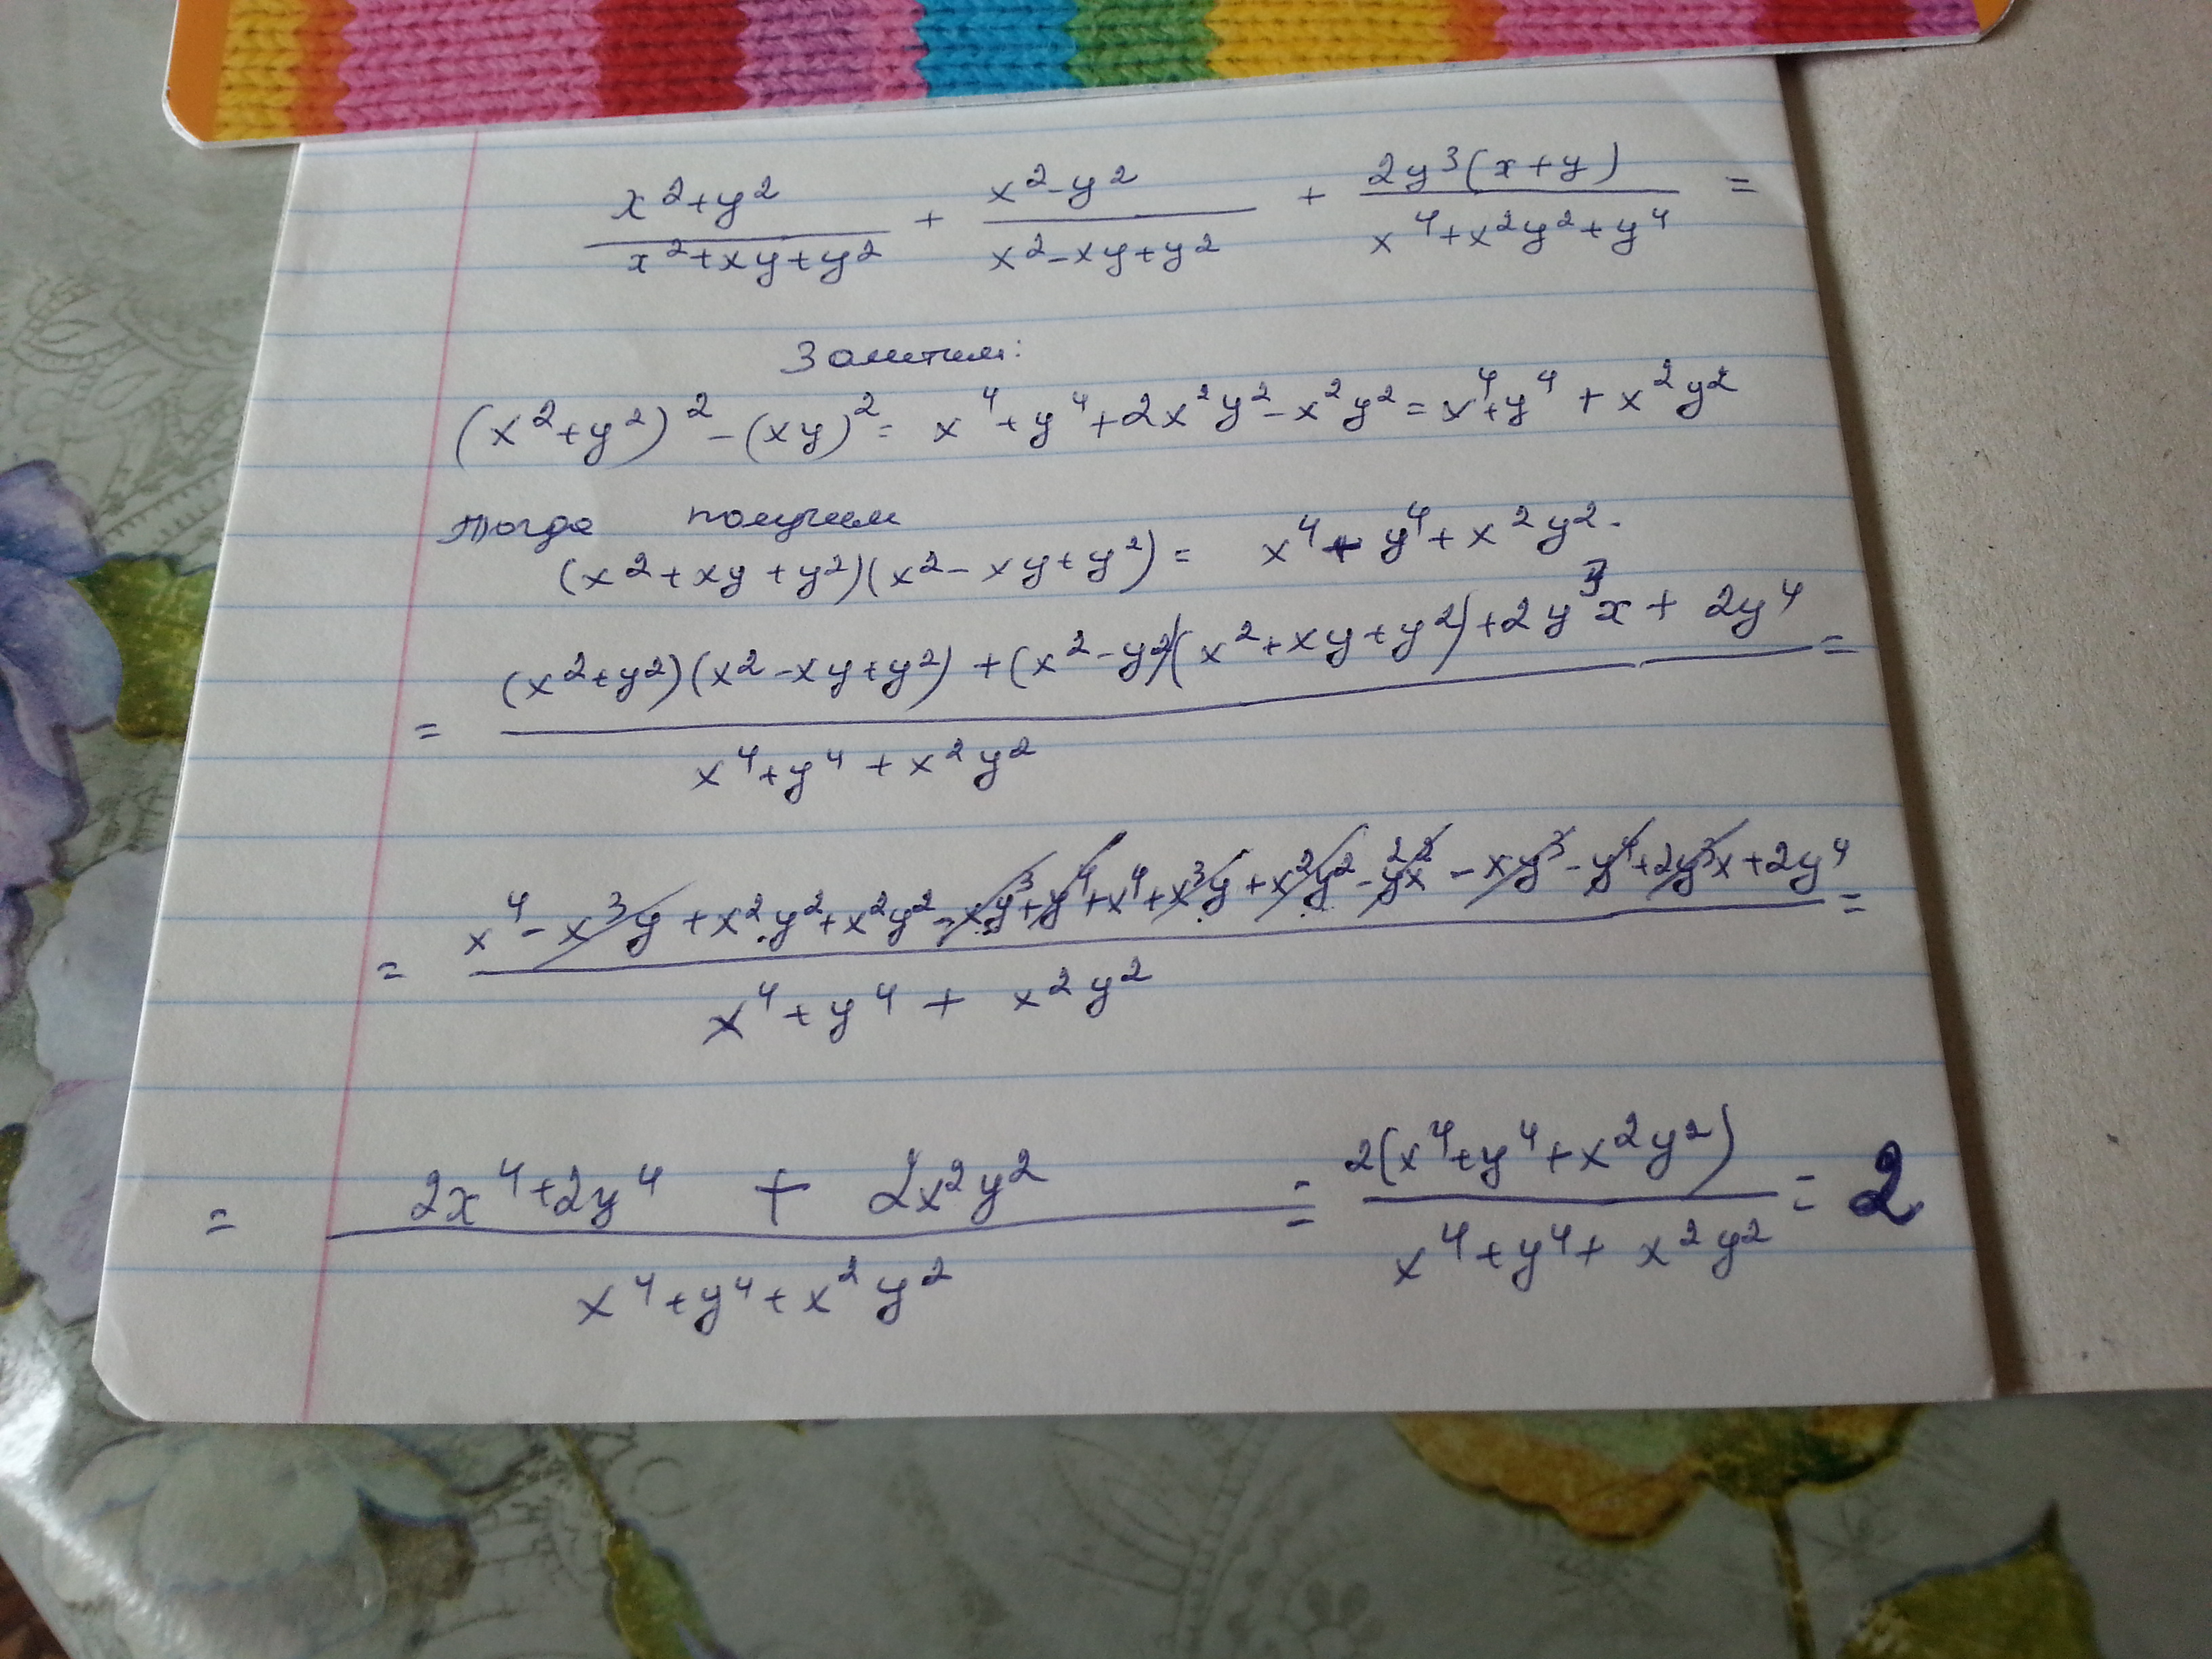 (x²+y²)/(x²+xy+y²) + (x²-y²)/(x²-xy+y²) + 2y³(x+y)/(x⁴+x²y²+y⁴) =
Заметим:
(x²+y²)²-(xy)²= x⁴+y⁴+2x²y²-x²y²=x⁴+y⁴+x²y²
Тогда получим
(x²+xy+y²)(x²-xy+y²)= x⁴+y⁴+x²y².
= ((x²+y²)(x²-xy+y²)+(x²-y²)(x²+xy+y²)+2y³x+2y⁴)/(x⁴+y⁴+x²y²) =
= (x⁴-x³y+x²y²+x²y²-xy³+y⁴+x⁴+x³y+x²y²-y²x²-xy³-y⁴+2y³x+2y⁴)/(x⁴+y⁴+x²y²) =
= (2x⁴+2y⁴+2x²y²)/(x⁴+y⁴+x²y²) = 2(x⁴+y⁴+x²y²)/(x⁴+y⁴+x²y²) = 2